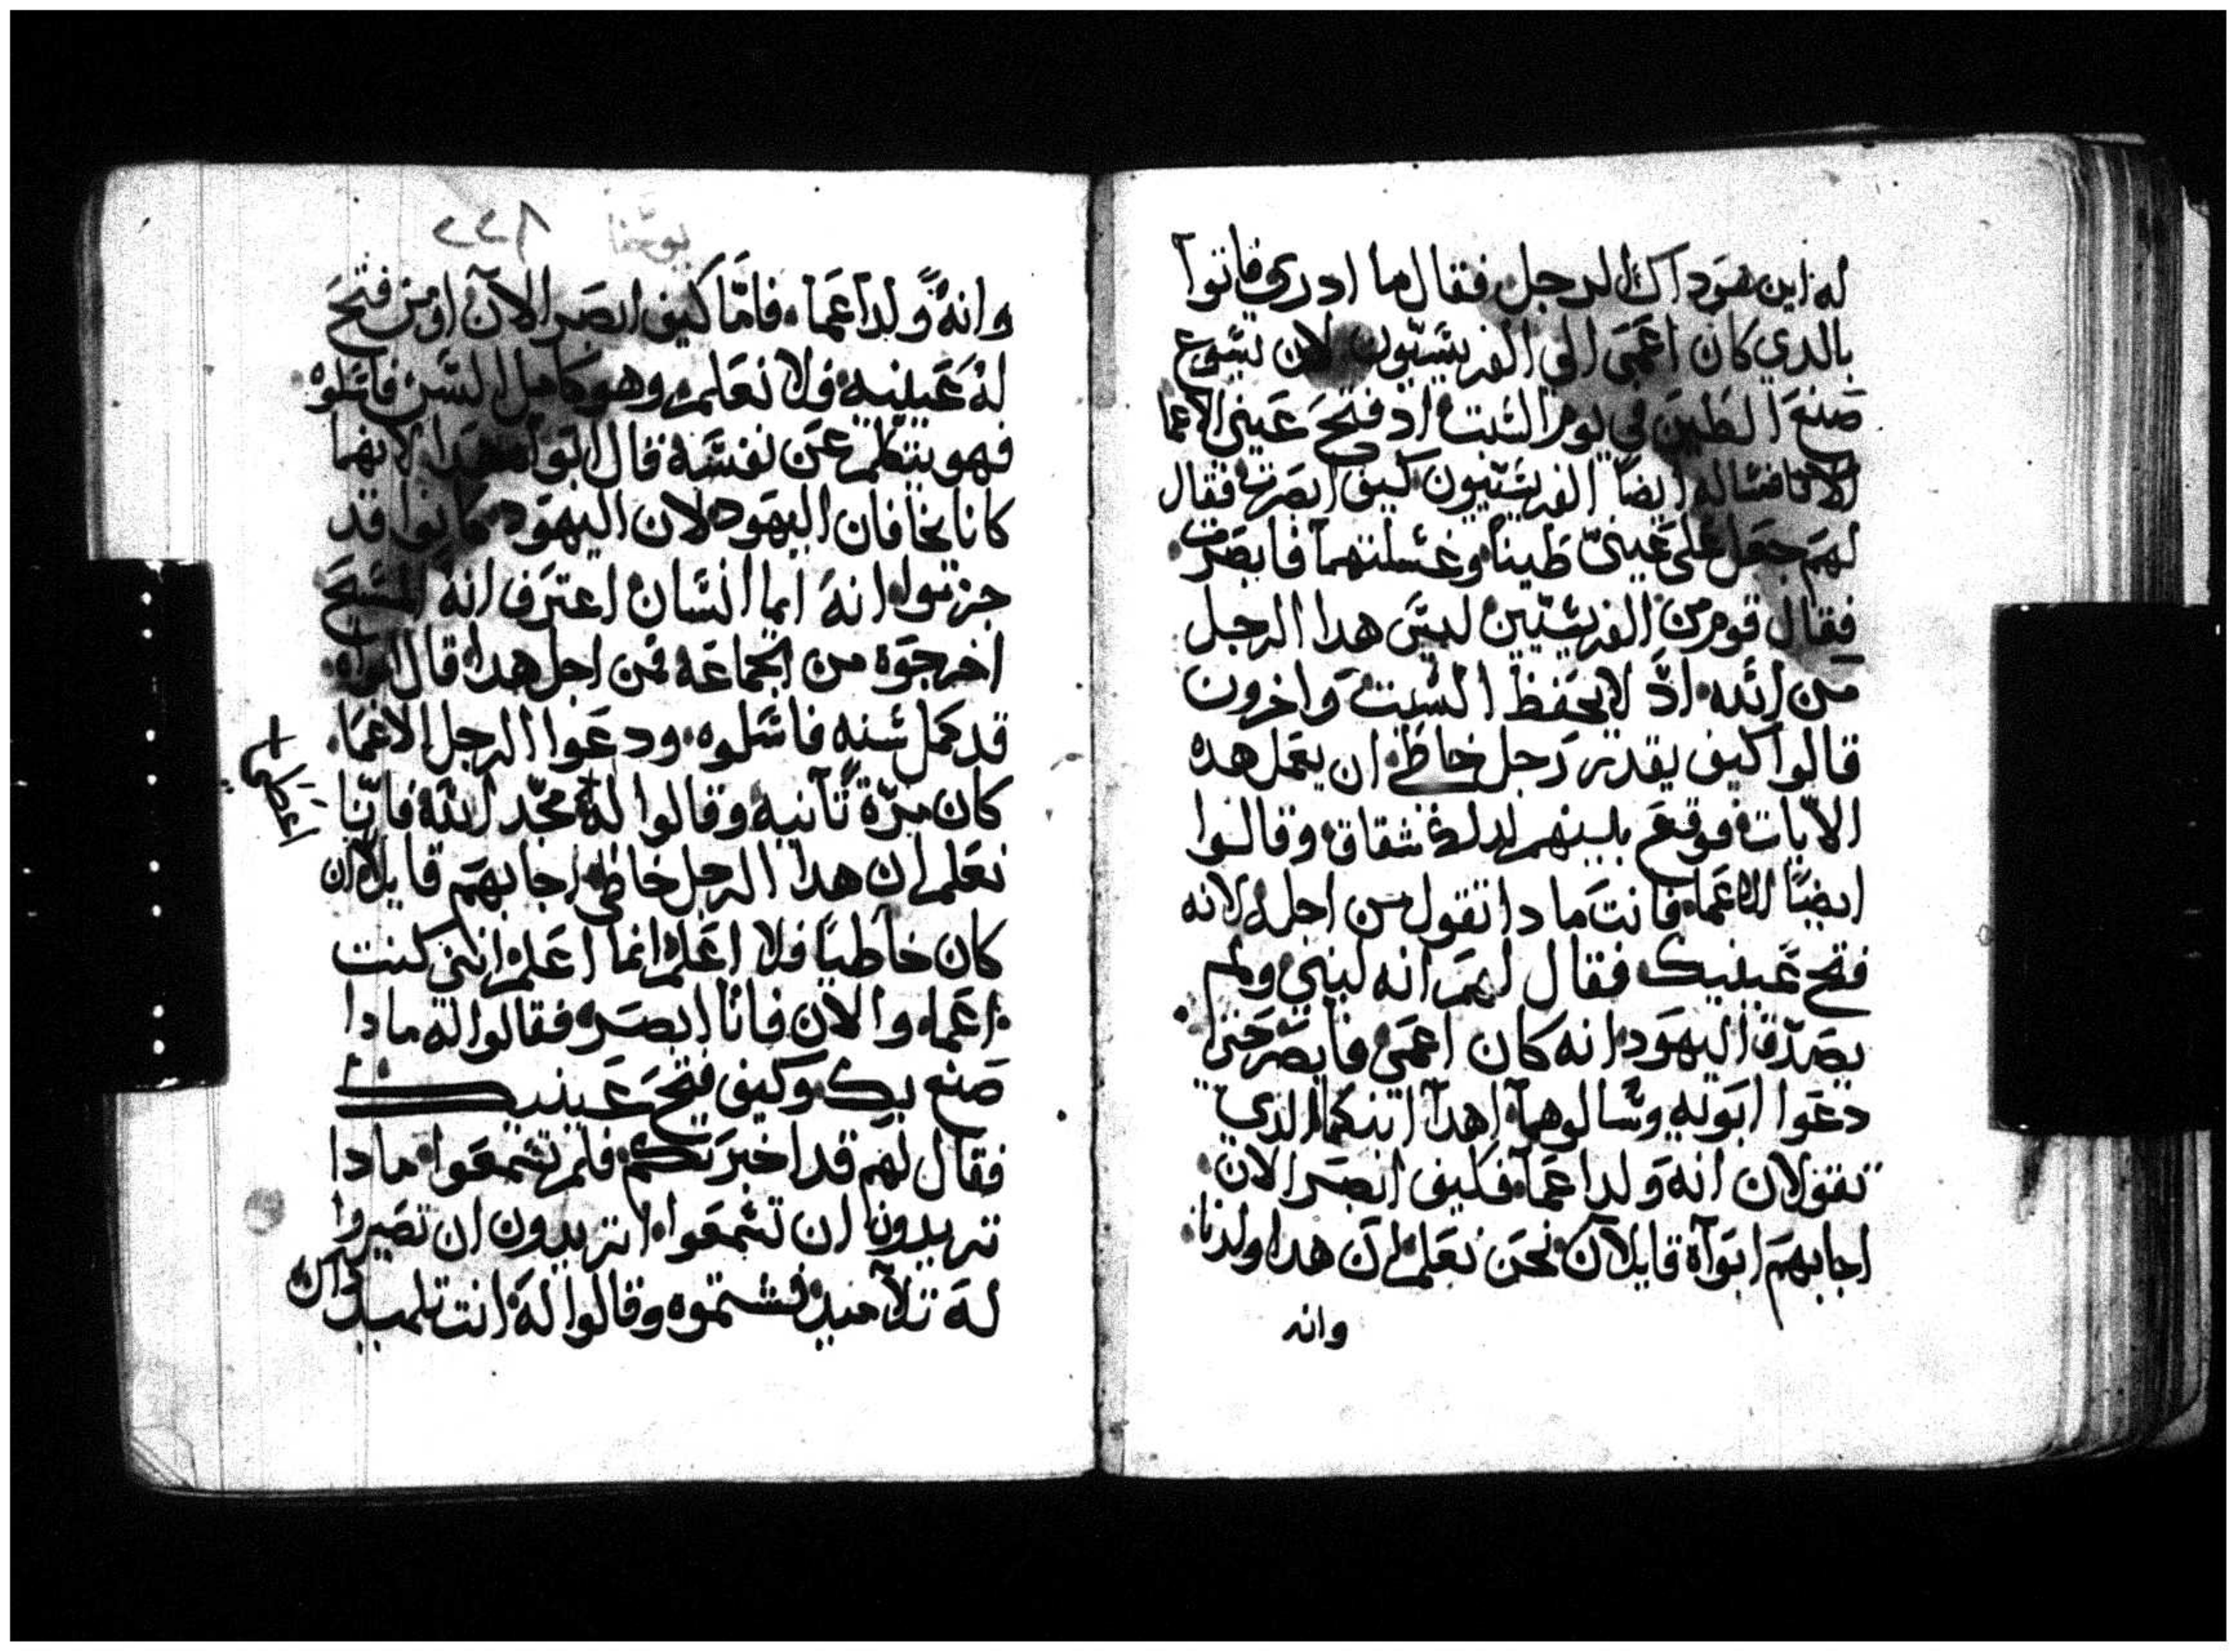 له اين هو داك الرجل فقال ما ادري فاتوا
بالدي كان اعمى الي الفريسيون لان يسوع
صنع الطين في يوم السبت اد فتح عيني الاعما
فساله ايضا الفريسيون كيف ابصرت فقال
لهم جعل على عيني طينا وغسلتهما فابصرت
فقال قوم من الفريسيين ليس هدا الرجل
من الله اد لا يحفظ السبت واخرون
قالوا كيف يقدر رجل خاطي ان يعمل هده
الايات فوقع بينهم لدلك شقاق وقالوا
ايضا للاعما فانت ما دا تقول من اجله لانه
فتح عينيك فقال لهم انه لنبي ولم
يصدق اليهود انه كان اعمى فابصر حتى
دعوا ابويه وسالوهما اهدا ابنكما الدي
تقولان انه ولد اعما فكيف ابصر الان
اجابهم ابواه قايلان نحن نعلم ان هدا ولدنا
وانه
يوحنا
وانه ولد اعما فاما كيف ابصر الان او من فتح
له عينيه فلا نعلم وهو كامل السن فاسلوه
فهو يتكلم عن نفسه قال ابواه هدا لانهما
كانا يخافان اليهود لان اليهود كانوا قد
جزموا انه ايما انسان اعترف انه المسيح
اخرجوه من الجماعه فمن اجل هدا قال ابواه
قد كمل سنه فاسلوه ودعوا الرجل الاعما
كان مرة ثانيه وقالوا له مجد الله فاننا
اعطي
نعلم ان هدا الرجل خاطي اجابهم قايلا ان
كان خاطيا فلا اعلم انما اعلم انني كنت
اعما والان فانا ابصر فقالوا له ما دا
صنع بك وكيف فتح عينيك
فقال لهم قد اخبرتكم فلم تسمعوا ما دا
تريدون ان تسمعوا اتريدون ان تصيروا
له تلاميد فشتموه وقالوا له انت تلميد داك